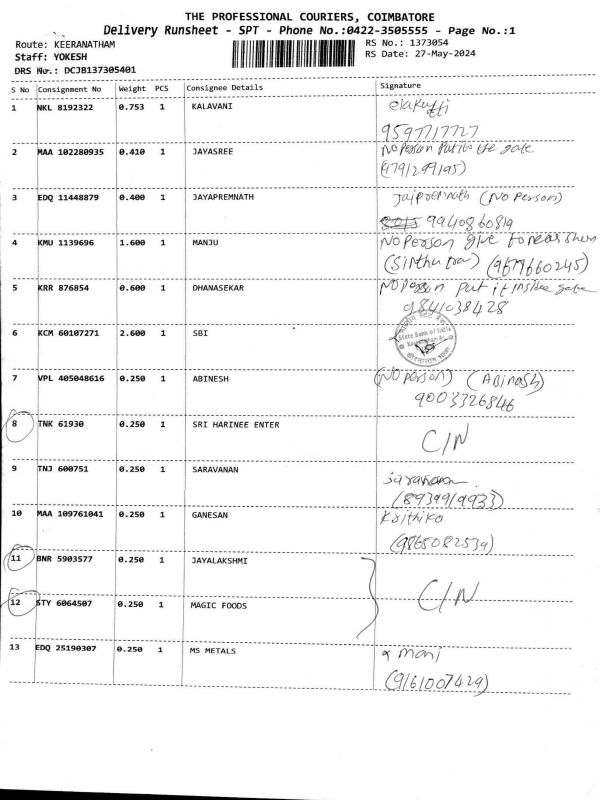 THE PROFESSIONAL COURIERS, COIMBATORE
Delivery Runsheet - SPT - Phone No.:0422-3505555 - Page No.:1
Route: KEERANATHAM RS No.: 1373054
Staff: YOKESH RS Date: 27-May-2024
DRS No.: DCJB137305401
S No Consignment No Weight PCS Consignee Details Signature
1 NKL 8192322 0.753 1 KALAVANI
9597717727
2 MAA 102280935 0.410 1 JAYASREE No person Put ito the gate
(9791299195)
3 EDQ 11448879 0.400 1 JAYAPREMNATH Jaipremnath (No Person)
9940860819
4 KMU 1139696 1.600 1 MANJU No Person give to near
(9677660245)
5 KRR 876854 0.600 1 DHANASEKAR No person put it inside gate
9841038428
6 KCM 60107271 2.600 1 SBI State Bank of India
7 VPL 405048616 0.250 1 ABINESH (No person) (Abinash)
9003326846
8 TNK 61930 0.250 1 SRI HARINEE ENTER C/N
9 TNJ 600751 0.250 1 SARAVANAN
(8939919933)
10 MAA 109761041 0.250 1 GANESAN
(9865082534)
11 BNR 5903577 0.250 1 JAYALAKSHMI
C/N
12 STY 6064507 0.250 1 MAGIC FOODS
13 EDQ 25190307 0.250 1 MS METALS mani
(9161007429)